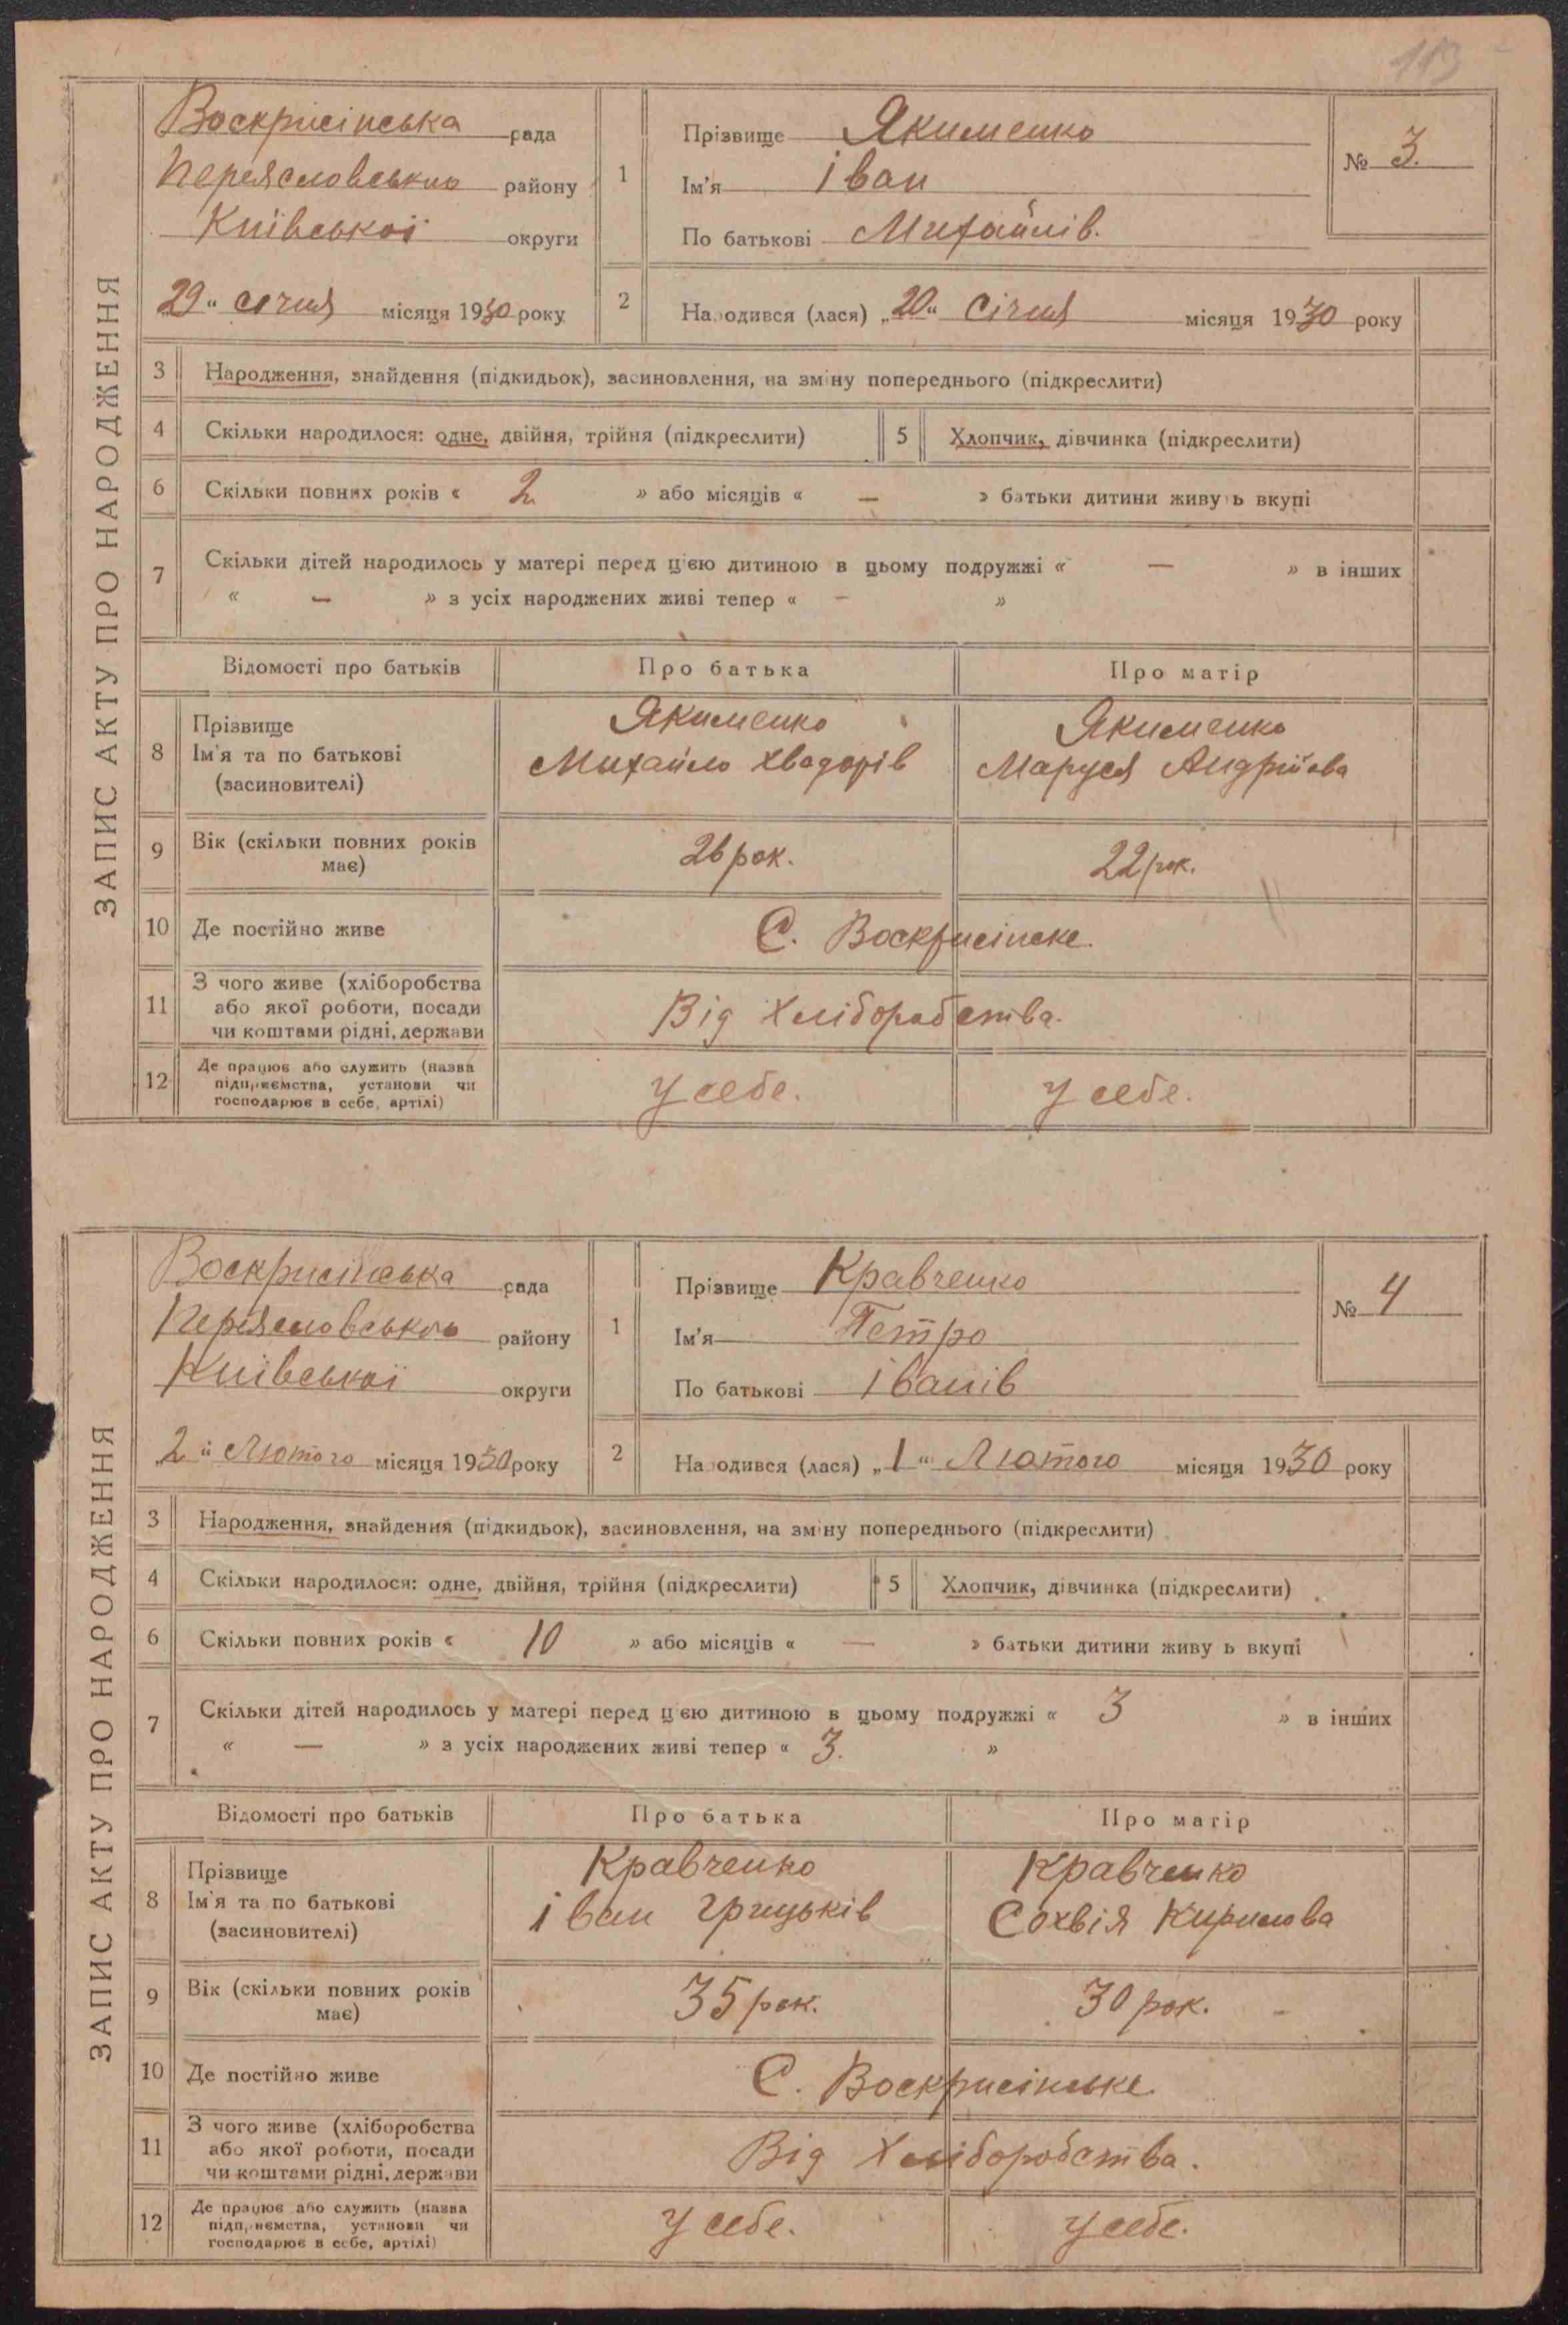 113
ЗАПИС АКТУ ПРО НАРОДЖЕННЯ
Воскрисінська рада
Переясловського району
Київської округи
29 " січня місяця 1930 року
1
Прізвище Якименко
Ім'я Іван
По батькові Михайлів.
№ 3.
2
Народився (лася) „20" Січня місяця 1930 року
3 Народження, знайдення (підкидьок), засиновлення, на зміну попереднього (підкреслити)
4 Скільки народилося: одне, двійня, трійня (підкреслити) 5 Хлопчик, дівчинка (підкреслити)
6 Скільки повних років « 2 » або місяців « — » батьки дитини живуть вкупі
7 Скільки дітей народилось у матері перед цією дитиною в цьому подружжі « — » в інших
« — » з усіх народжених живі тепер « — »
Відомості про батьків Про батька Про матір
8 Прізвище
Ім'я та по батькові
(засиновителі)
Якименко
Михайло Хведорів
Якименко
Маруся Андрійова
9 Вік (скільки повних років
має)
26 рок. 22 рок.
10 Де постійно живе С. Воскрисінске.
11 З чого живе (хліборобства
або якої роботи, посади
чи коштами рідні, держави
Від Хліборобства.
12 Де працює або служить (назва
підприємства, установи чи
господарює в себе, артілі)
у себе. у себе.
ЗАПИС АКТУ ПРО НАРОДЖЕННЯ
Воскрисінська рада
Переясловського району
Київської округи
„2" Лютого місяця 1930 року
1
Прізвище Кравченко
Ім'я Петро
По батькові Іванів
№ 4
2
Народився (лася) „1" Лютого місяця 1930 року
3 Народження, знайдення (підкидьок), засиновлення, на зміну попереднього (підкреслити)
4 Скільки народилося: одне, двійня, трійня (підкреслити) 5 Хлопчик, дівчинка (підкреслити)
6 Скільки повних років « 10 » або місяців « — » батьки дитини живуть вкупі
7 Скільки дітей народилось у матері перед цією дитиною в цьому подружжі « 3 » в інших
« — » з усіх народжених живі тепер « 3. »
Відомості про батьків Про батька Про матір
8 Прізвище
Ім'я та по батькові
(засиновителі)
Кравченко
Іван Грицьків
Кравченко
Сохвія Кирилова
9 Вік (скільки повних років
має)
35 рок. 30 рок.
10 Де постійно живе С. Воскрисінське
11 З чого живе (хліборобства
або якої роботи, посади
чи коштами рідні, держави
Від Хліборобства.
12 Де працює або служить (назва
підприємства, установи чи
господарює в себе, артілі)
у себе. у себе.